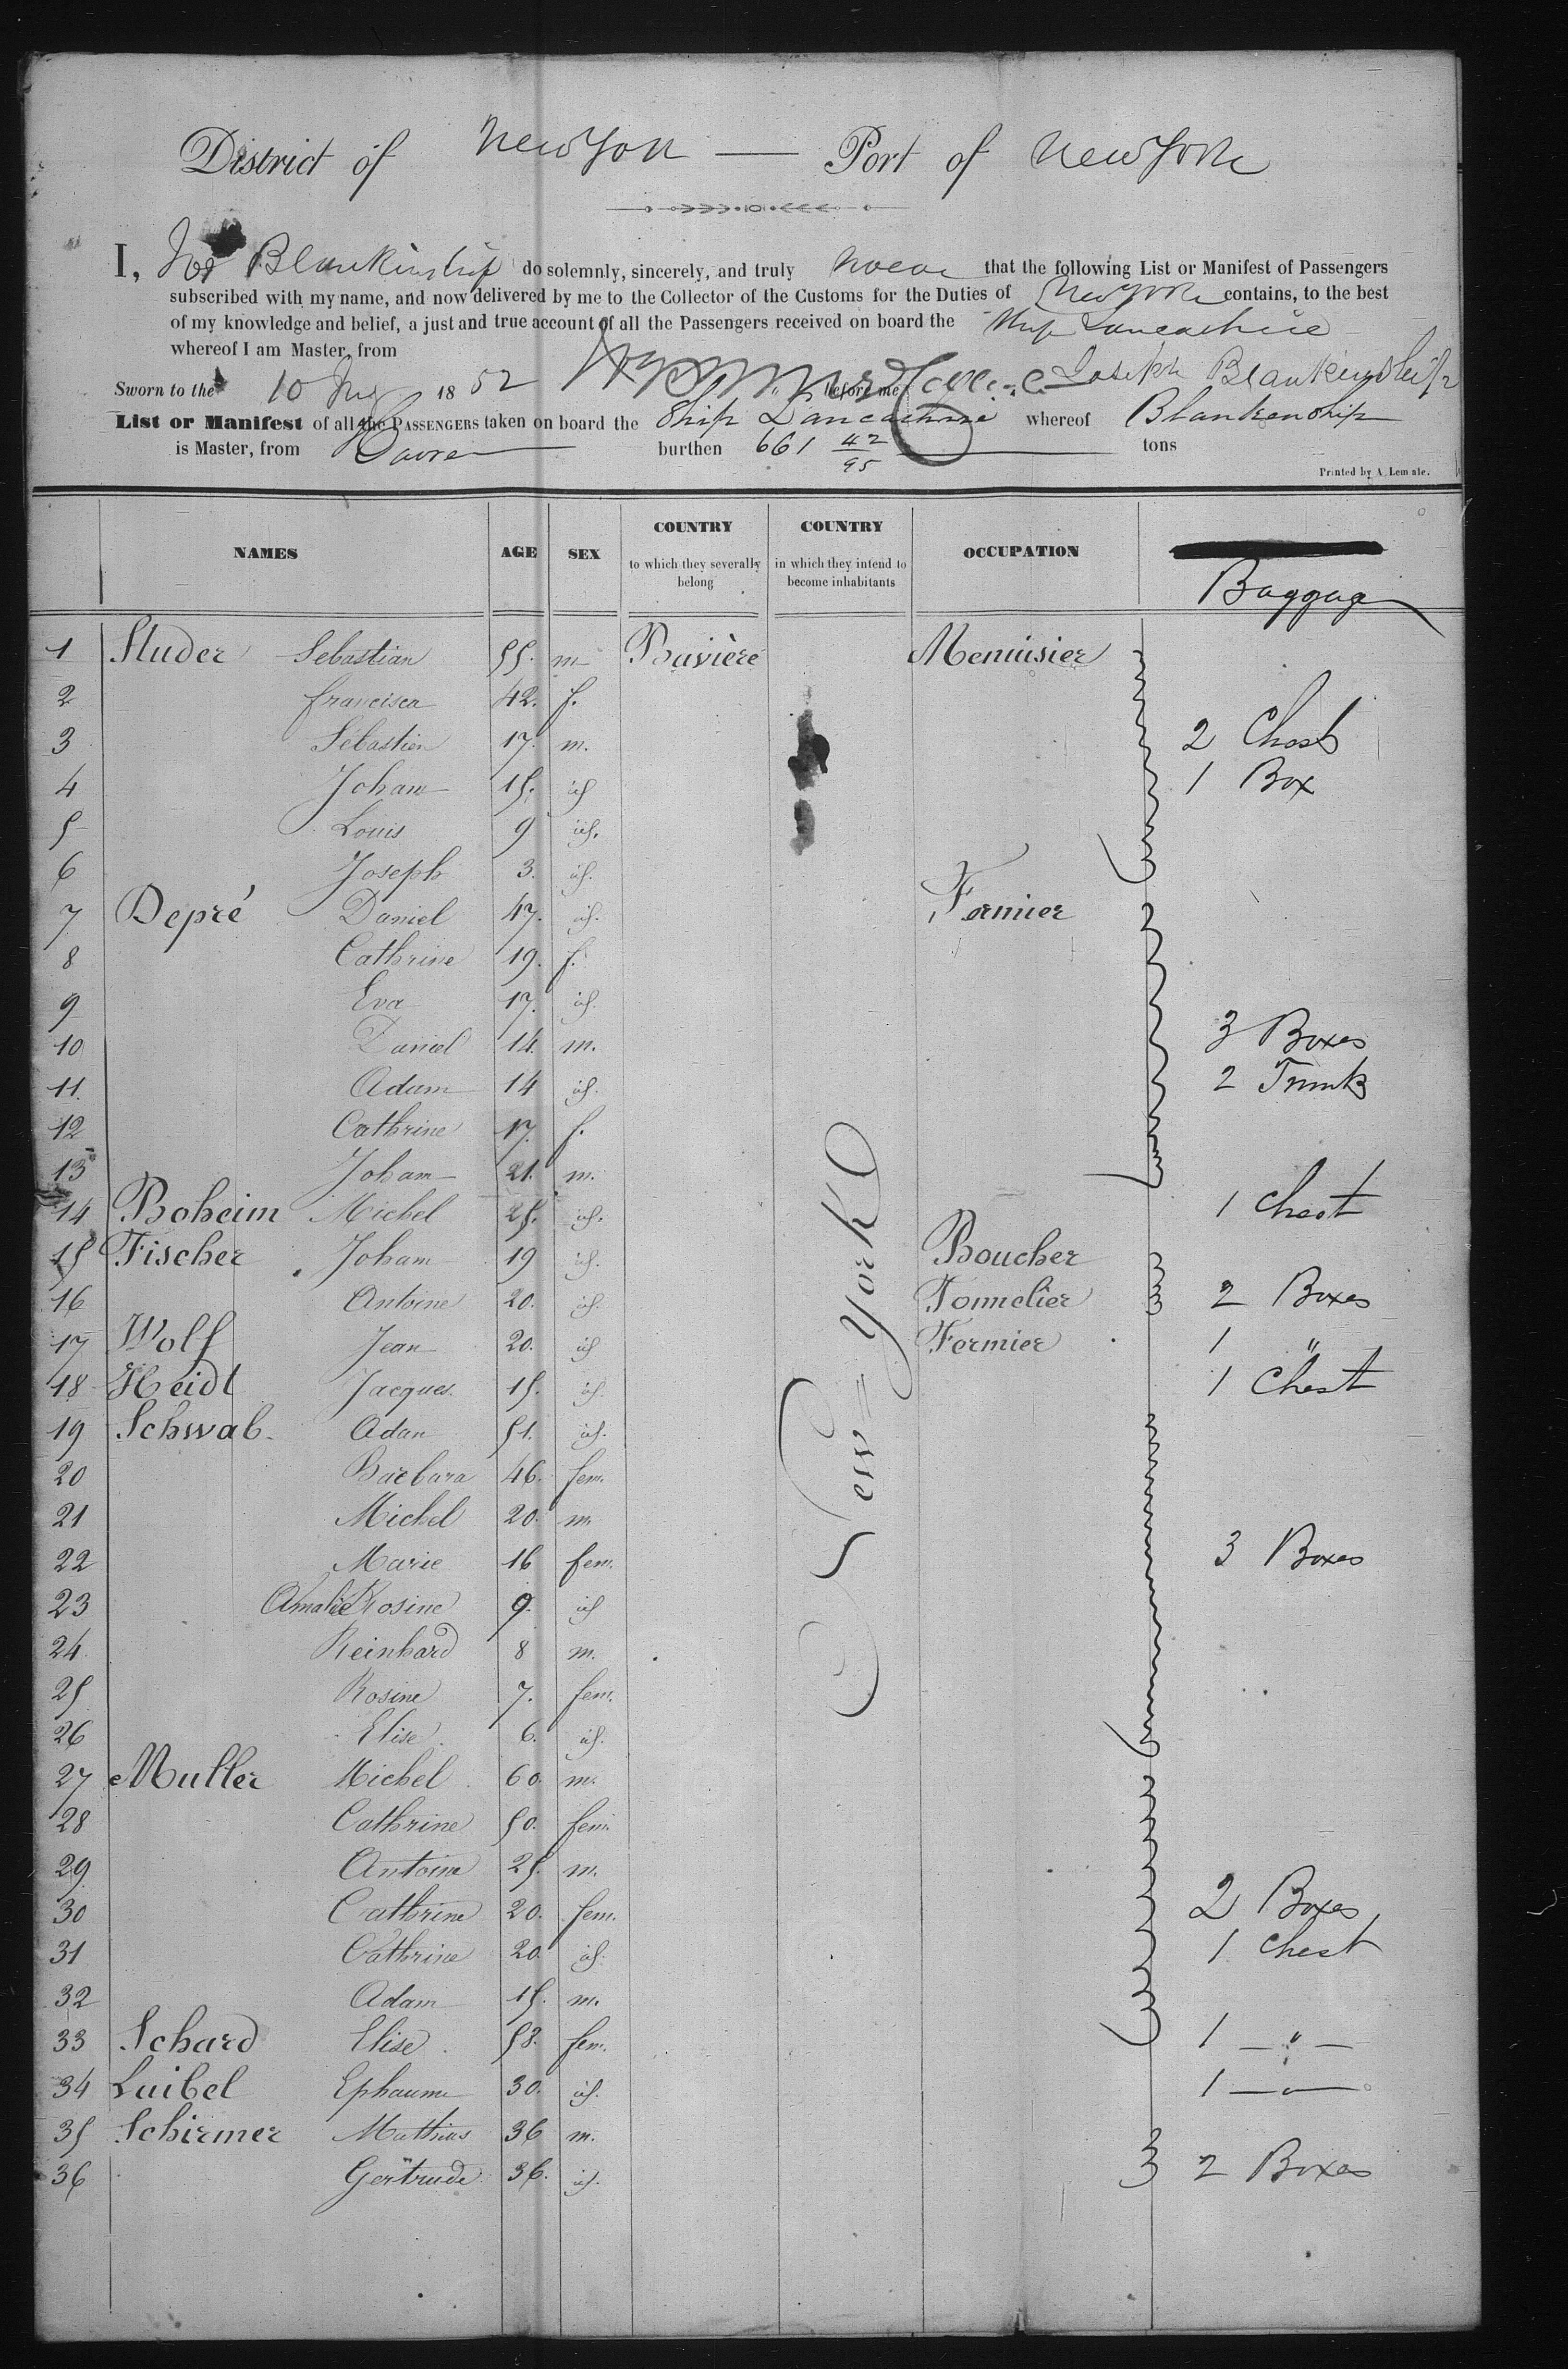 District of New York — Port of New York
I, Jos Blankinship do solemnly, sincerely, and truly swear that the following List or Manifest of Passengers
subscribed with my name, and now delivered by me to the Collector of the Customs for the Duties of New York contains, to the best
of my knowledge and belief, a just and true account of all the Passengers received on board the Ship Lancashire
whereof I am Master, from
Sworn to the 10 1852 before me Joseph Blankinship
List or Manifest of all the PASSENGERS taken on board the Ship Lancashire whereof Blankenship
is Master, from Havre burthen 661 42/95 tons
Printed by A. Lemale.
NAMES AGE SEX COUNTRY to which they severally belong COUNTRY in which they intend to become inhabitants OCCUPATION Baggage
1 Studer Sebastian 55. m Bavière Menuisier
2 francisca 42. f.
3 Sebastien 17. m. 2 Chests
4 Joham 15. id 1 Box
5 Louis 9 id.
6 Joseph 3. id.
7 Depré Daniel 47. id. Fermier
8 Cathrine 19. f.
9 Eva 17. id.
10 Daniel 14. m. 3 Boxes
11. Adam 14 id. 2 Trunks
12 Cathrine 17. f.
13 Joham 21. m.
14 Boheim Michel 25. id. 1 Chest
15 Fischer Joham 19 id. Boucher
16 Antoine 20. id. Tonnelier 2 Boxes
17 Wolf Jean 20. id Fermier 1 "
18 Heidt Jacques 15. id. 1 Chest
19 Schwab. Adan 51. id.
20 Barbara 46. fem.
21 Michel 20. m.
22 Marie 16 fem. 3 Boxes
23 Amalie Rosine 9. id
24. Reinhard 8 m.
25 Rosine 7. fem.
26 Elise 6. id.
27 Muller Michel 60. m.
28 Cathrine 50. fem.
29 Antoine 25. m.
30 Cathrine 20. fem. 2 Boxes
31 Cathrine 20. id. 1 Chest
32 Adam 15. m.
33 Schard Elise 53. fem. 1 — " —
34 Luibel Ephaume 30. id. 1 — " —
35 Schirmer Mathias 36 m.
36 Gertrude 36. id. 2 Boxes
New=York